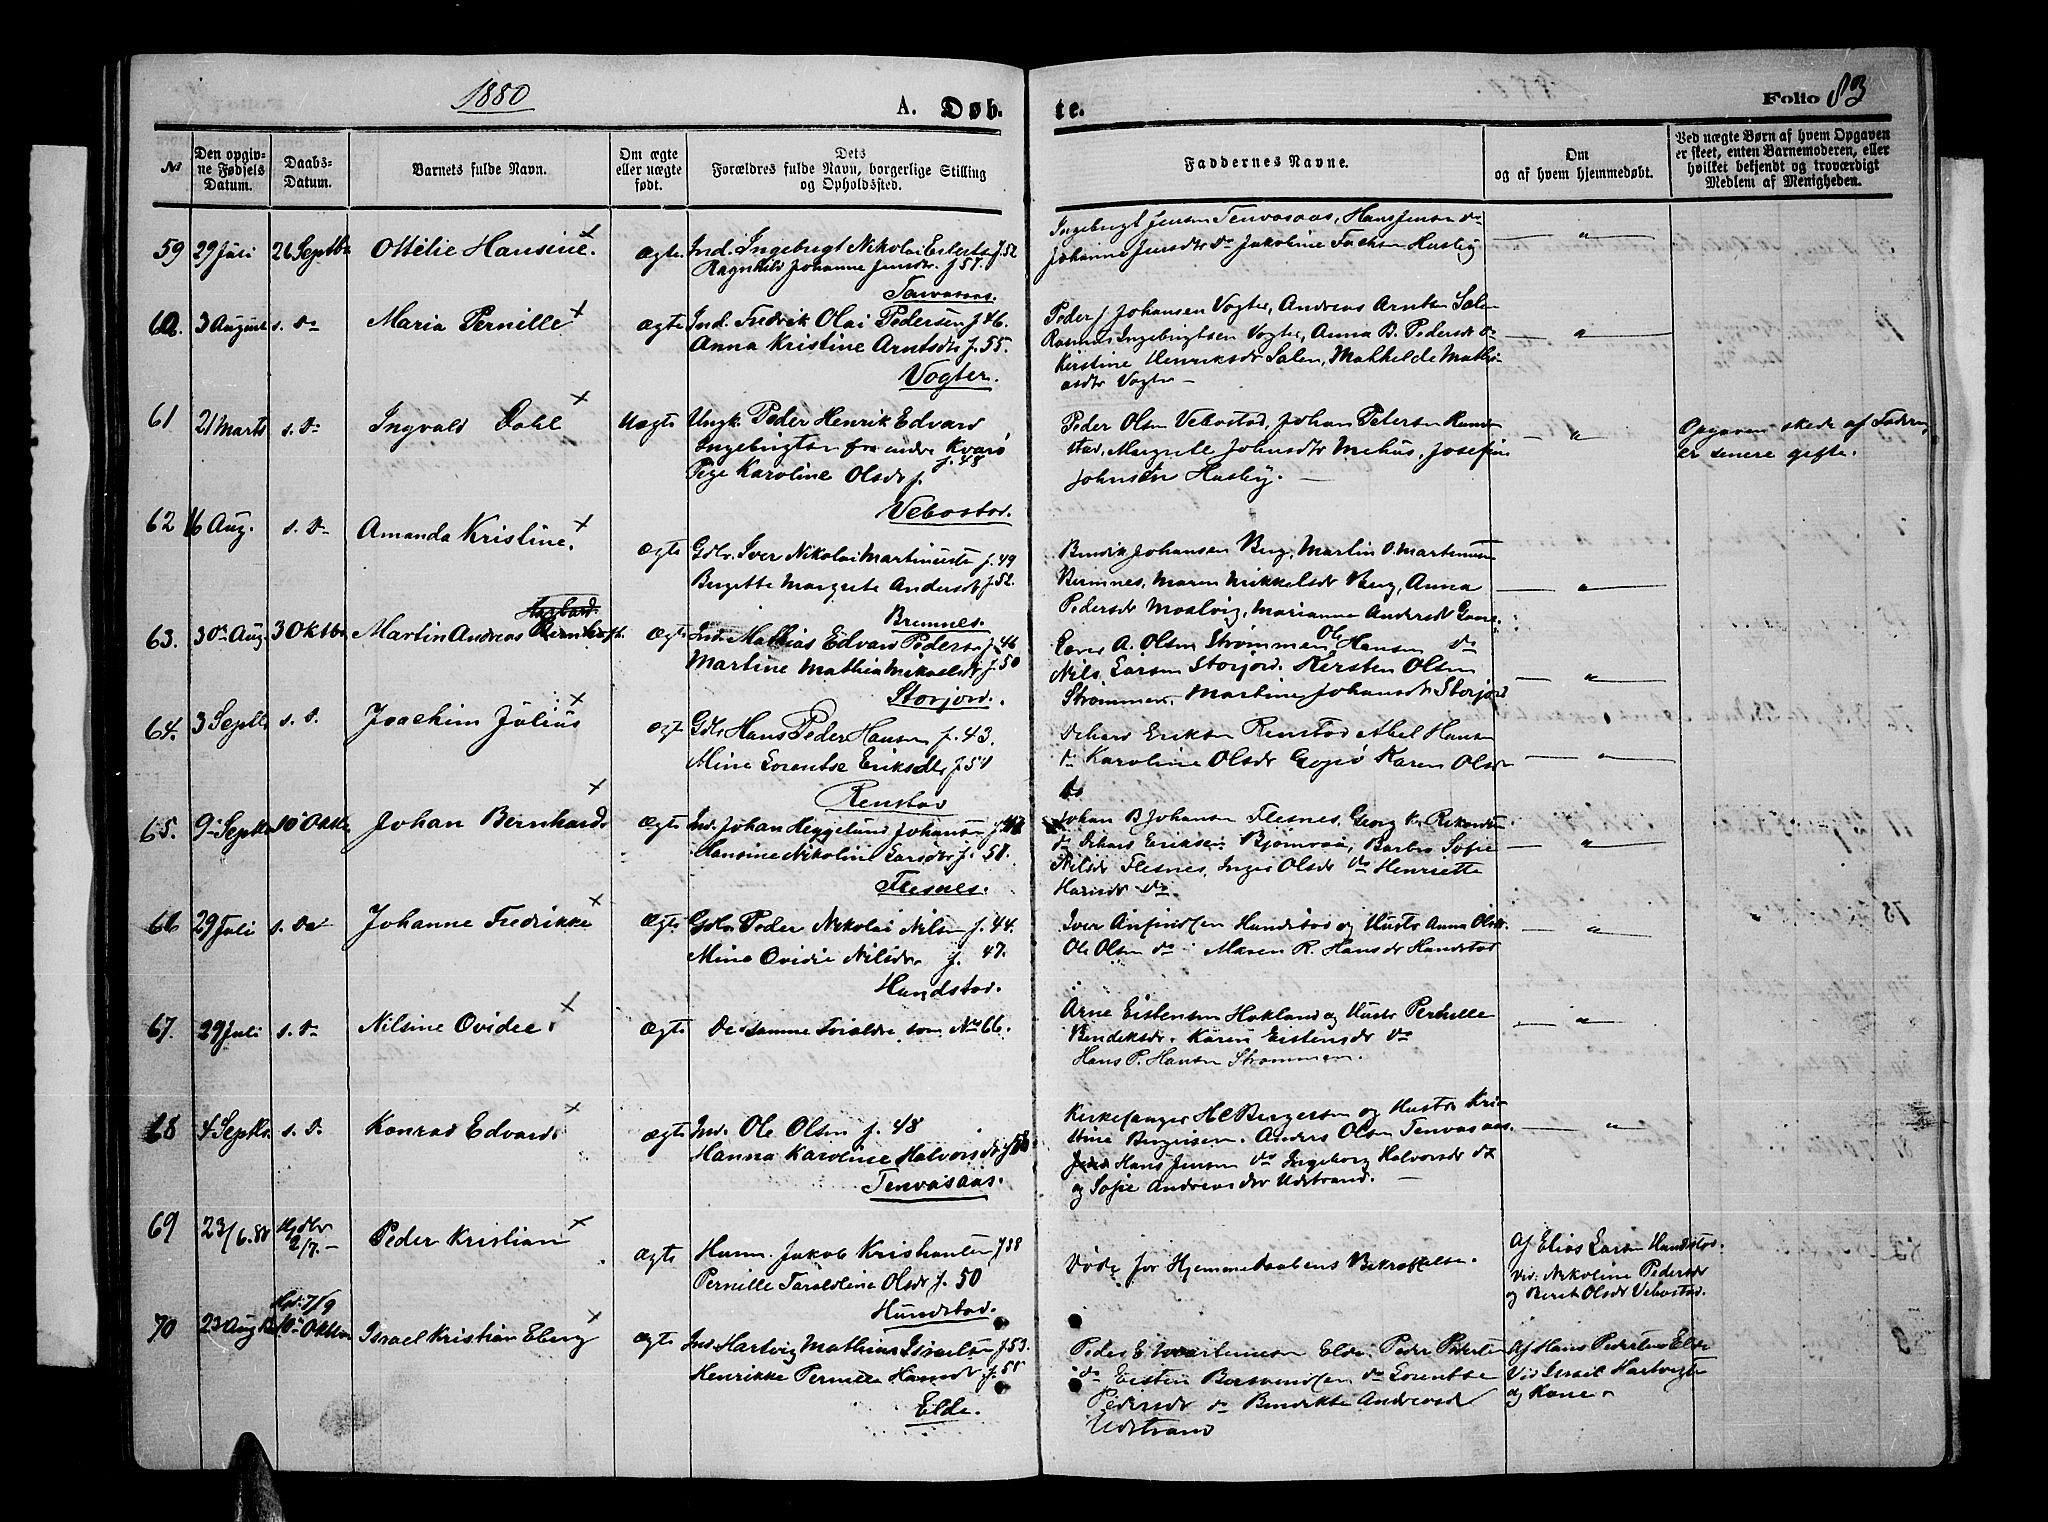 1880
A. Døb.
te.
Folio 83
No
Den opgiv-
ne Fødsels
Datum.
Daabs-
Datum.
Barnets fulde Navn.
Om ægte
eller uægte
født.
Dets
Forældres fulde Navn, borgerlige Stilling
og Opholdssted.
Faddernes Navne.
Om
og af hvem hjemmedøbt.
Ved uægte Børn af hvem Opgaven
er skeet, enten Barnemoderen, eller
hvilket bekjendt og troværdigt
Medlem af Menigheden.
59 29 Juli 26 Septbr Ottelie Hansine. Ægte Ind. Ingebrigt Nikolai f. 52
Ragnhild Johanne Jensdr. f. 57.
Tenvasaas.
Ingebrigt Jensen Tenvasaas, Hans Jensen do
Johanna Jensdtr do Jakoline Husby
60. 3 August s. D. Maria Pernille Ægte Ind. Fredrik Olai Pedersen f. 46.
Anna Kristine Arntsdtr f. 55.
Vogter.
Peder J. Johansen Vogter, Andreas Arntsen Salen
Rasmus Ingebrigtsen Vogter, Anna B. Pedersdr do
Kirstine Henriksdr Salen, Mathi-
asdtr Vogter —
61 21 Marts s. D. Ingvald Dahl Uægte Ungk. Peder Henrik Edvard
Ingebrigtsen fra indre Kvarø f. 48
Pige Karoline Olsdr f.
Vebostad.
Peder Olsen Vebostad, Johan Petersen
Margrete Johnsdtr Mehus, Josefine
Johnsen Husby. —
Opgaven skede af Faderen,
er senere gifte.
62 16 Aug. s. D. Amanda Kristine. Ægte Gdbr. Iver Nikolai Martinussen f. 49
Bergette Margrete Andersdtr f. 52.
Bremnes.
Bendik Johansen Berg, Martin O. Martinussen
Bremnes, Maren Mikkelsdr Berg, Anna
Pedersdr Moelvig, Marianne Andersdr
63. 30 Aug 3 Oktbr Martin Andreas Ægte Ind. Mathias Edvard Pedersen f. 46
Martine Mathea Mikaelsdr f. 50
Storjord.
A. Olsen Strømmen, Ole Hansen do
Nils Larsen Storjord. Kirsten Olsen
Strømmen, Martine Johansdr Storjord
64. 3 Septbr s. D. Joachim Julius ægte Gdbr Hans Peder Hansen f. 43.
Mine Lorentse Eriksdtr f. 51
Renstad
Edvard Eriksen Renstad Abel Hansen
do Karoline Olsdr Karen Olsdr
do
65. 9 Septbr 10 Oktbr Johan Bernhard Ægte Ind. Johan Heggelund Johansen
Hansine Nikoline Larsdtr f. 58.
Flesnes.
Johan B Johansen Flesnes, Georg
do Edvard Eriksen Barbro Sofie
Nilsdr Flesnes, Inger Olsdr do Henriette
Hansdr do
66 29 Juli s. D. Johanne Fredrikke Ægte Gdbr Peder Nikolai Nilsen f. 44.
Mina Ovidie Nilsdr. f. 47.
Hundstad.
Iver Hundstad og Hustr Anna Olsdr
Ole Olsen do Maren R. Hansdr Hundstad
67. 29 Juli s. D. Nilsine Ovidee Ægte De samme Forældre som No 66.
Arne Eistensen Hokland og Hustr Pernille
Bendiksdr. Karen Eistensdr do
Hans P. Hansen Strømmen.
68 4 Septbr. s. D. Konrad Edvard ægte Ind. Ole Olsen f. 48
Hanna Karoline Halvorsdr
Tenvasaas.
Kirkesanger H C Bergersen og Hustr Kri-
stine Bergersen. Anders Olsen Tenvasaas.
Hans Jensen do Ingeborg Halvorsdr do
og Sofie Andreasdtr Udstrand. —
69 23/6.80 Hjdbr 2/7.— Peder Kristian ægte Huum. Jakob Kristiansen f 38
Pernille Taraldine Olsdr f. 50
Hundstad.
Døde før Hjemmedaabens Bekræftelse.
Af Elias Larsen Hundstad.
Vid: Nikoline Pedersdr
og Berit Olsdr Vebostad.
70 23 Aug Hjd: 7/9 10 Oktbr Israel Kristian Eberg ægte Ind. Hartvig Mathias Israelsen f. 53.
Henrikke Pernille Hansdr f. 55
Elde.
Peder E. Martinussen Elde. Peder Pedersen
do Eistein do Lorentse
Pedersdr do Bendikte Andreasdr
Udstrand
Af Hans Pedersen Elde
Vid Israel Hartvigsen
og Kone.